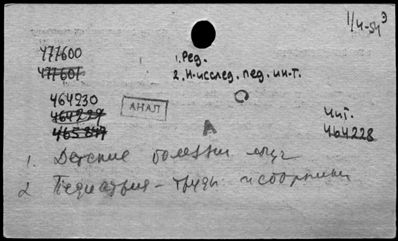 1/4-54 Э
477600
477601
1. Ред.
2. Н-исслед. пед. ин-т.
464230
464229
465847
АНАЛ
Чит.
464228
А
1. Детские болезни
2 Педиатрия - труды и сборники